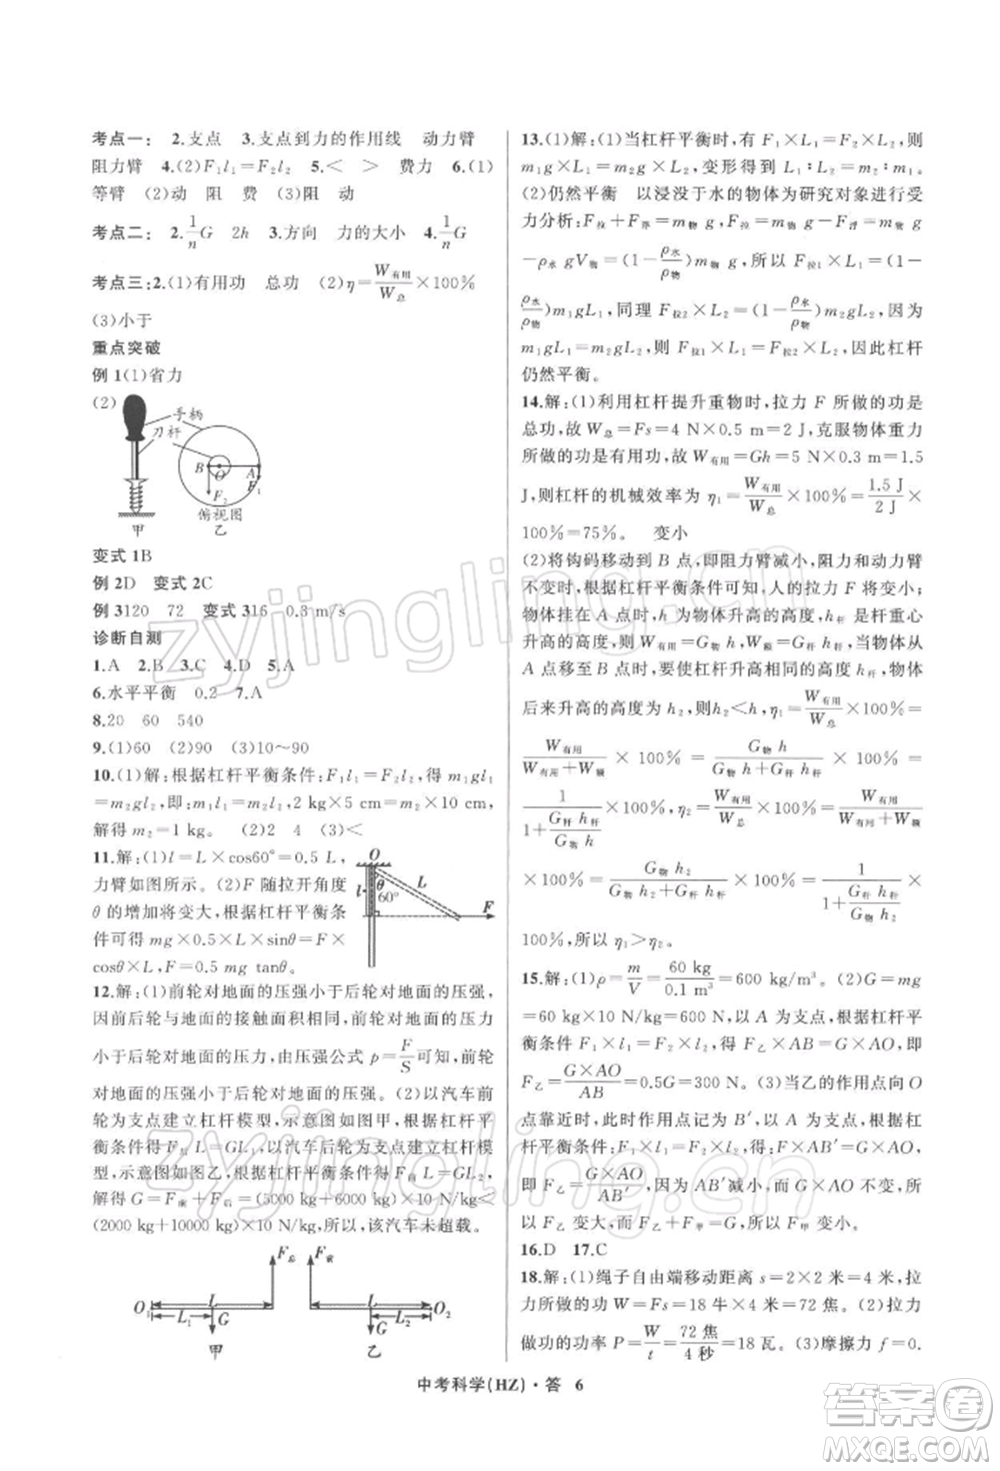 考点一： 2.支点 3.支点到力的作用线 动力臂
阻力臂 4.(2)F₁l₁＝F₂l₂ 5.＜ ＞ 费力 6.(1)
等臂 (2)动 阻 费 (3)阻 动
考点二： 2.1/n G 2h 3.方向 力的大小 4.1/n G
考点三：2.(1)有用功 总功 (2)η＝W有用/W总×100%
(3)小于
重点突破
例 1(1)省力
(2)
手柄
刀杆
B O A
F₂ F₁
俯视图
甲 乙
变式 1B
例 2D 变式 2C
例 3120 72 变式 316 0.3 m/s
诊断自测
1.A 2.B 3.C 4.D 5.A
6.水平平衡 0.2 7.A
8.20 60 540
9.(1)60 (2)90 (3)10～90
10.(1)解：根据杠杆平衡条件：F₁l₁＝F₂l₂，得 m₁gl₁
＝m₂gl₂，即：m₁l₁＝m₂l₂，2 kg×5 cm＝m₂×10 cm，
解得 m₂＝1 kg。 (2)2 4 (3)＜
11.解：(1)l＝L×cos60°＝0.5 L，
力臂如图所示。(2)F 随拉开角度
θ 的增加将变大，根据杠杆平衡条
件可得 mg×0.5×L×sinθ＝F×
cosθ×L，F＝0.5 mg tanθ。
O
l θ L
60°
F
12.解：(1)前轮对地面的压强小于后轮对地面的压强，
因前后轮与地面的接触面积相同，前轮对地面的压力
小于后轮对地面的压力，由压强公式 p＝F/S可知，前轮
对地面的压强小于后轮对地面的压强。(2)以汽车前轮
为支点建立杠杆模型，示意图如图甲，根据杠杆平
衡条件得 F后 L＝GL₁，以汽车后轮为支点建立杠杆模
型，示意图如图乙，根据杠杆平衡条件得 F前 L＝GL₂，
解得 G＝F前＋F后＝(5000 kg＋6000 kg)×10 N/kg＜
(2000 kg＋10000 kg)×10 N/kg，所以，该汽车未超载。
F后 F前
O₁ L L O₂
L₁ G G L₂
甲 乙
13.(1)解：(1)当杠杆平衡时，有 F₁×L₁＝F₂×L₂，则
m₁g×L₁＝m₂g×L₂，变形得到 L₁：L₂＝m₂：m₁。
(2)仍然平衡 以浸没于水的物体为研究对象进行受
力分析：F拉＋F浮＝m物 g，所以 F拉＝m物 g－F浮＝m物 g
－ρ水 gV物＝(1－ρ水/ρ物)m物 g，所以 F拉1×L₁＝(1－
ρ水/ρ物)m₁gL₁，同理 F拉2×L₂＝(1－ρ水/ρ物)m₂gL₂，因为
m₁gL₁＝m₂gL₂，则 F拉1×L₁＝F拉2×L₂，因此杠杆
仍然平衡。
14.解：(1)利用杠杆提升重物时，拉力 F 所做的功是
总功，故 W总＝Fs＝4 N×0.5 m＝2 J，克服物体重力
所做的功是有用功，故 W有用＝Gh＝5 N×0.3 m＝1.5
J，则杠杆的机械效率为 η₁＝W有用/W总×100%＝1.5 J/2 J×
100%＝75%。 变小
(2)将钩码移动到 B 点，即阻力臂减小，阻力和动力臂
不变时，根据杠杆平衡条件可知，人的拉力 F 将变小；
物体挂在 A 点时，h 为物体升高的高度，h杆是杆重心
升高的高度，所以 W有用＝G物 h，W额＝G杆 h杆，物体从
A 点移至 B 点，若要使杠杆升高相同的高度 h杆，物体
后来升高的高度为 h₂，则h₂＜h，η₁＝W有用/W总×100%＝
W有用/W有用＋W额×100%＝G物 h/G物 h＋G杆 h杆×100%＝
1/1＋G杆 h杆/G物 h×100%，η₂＝W有用/W总×100%＝W有用/W有用＋W额
×100%＝G物 h₂/G物 h₂＋G杆 h杆×100%＝1/1＋G杆 h杆/G物 h₂×
100%，所以 η₁＞η₂。
15.解：(1)ρ＝m/V＝60 kg/0.1 m³＝600 kg/m³。(2)G＝mg
＝60 kg×10 N/kg＝600 N，以 A 为支点，根据杠杆平
衡条件 F₁×l₁＝F₂×l₂，得 F乙×AB＝G×AO，
F乙＝G×AO/AB＝0.5G＝300 N。(3)当乙的作用点向 O
点靠近时，此时作用点记为 B′，以 A 为支点，根据杠
杆平衡条件：F₁×l₁＝F₂×l₂得：F×AB′＝G×AO，
即 F乙＝G×AO/AB′，因为 AB′减小，而 G×AO 不变，所
以 F乙 变大；而 F甲＋F乙＝G，所以 F甲 变小。
16.D 17.C
18.解：(1)绳子自由端移动距离 s＝2×2 米＝4 米，拉
力所做的功 W＝Fs＝18 牛×4 米＝72 焦。(2)拉力
做功的功率 P＝W/t＝72 焦/4 秒＝18 瓦。(3)摩擦力 f＝0.
中考科学(HZ)·答 6
zyjingling.cn
zyjingling.cn
答案圈
MXQE.COM